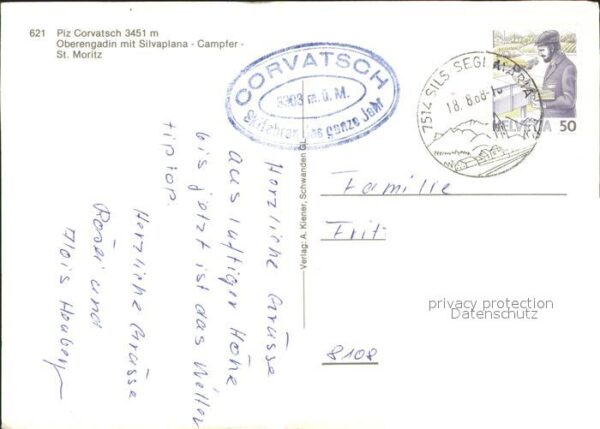 621 Piz Corvatsch 3451 m
Oberengadin mit Silvaplana - Campfer -
St. Moritz
CORVATSCH
3303 m.ü.M.
Skifahren das ganze Jahr
7514 SILS SEGL MARIA
18.8.88-1
HELVETIA 50
Herzliche Grüsse
aus luftiger Höhe
bis jetzt ist das Wetter
tiptop.
Herzliche Grüsse
Rösi und
Alois
Verlag: A. Kiener, Schwanden GL
Familie
Frit
8108
privacy protection
Datenschutz